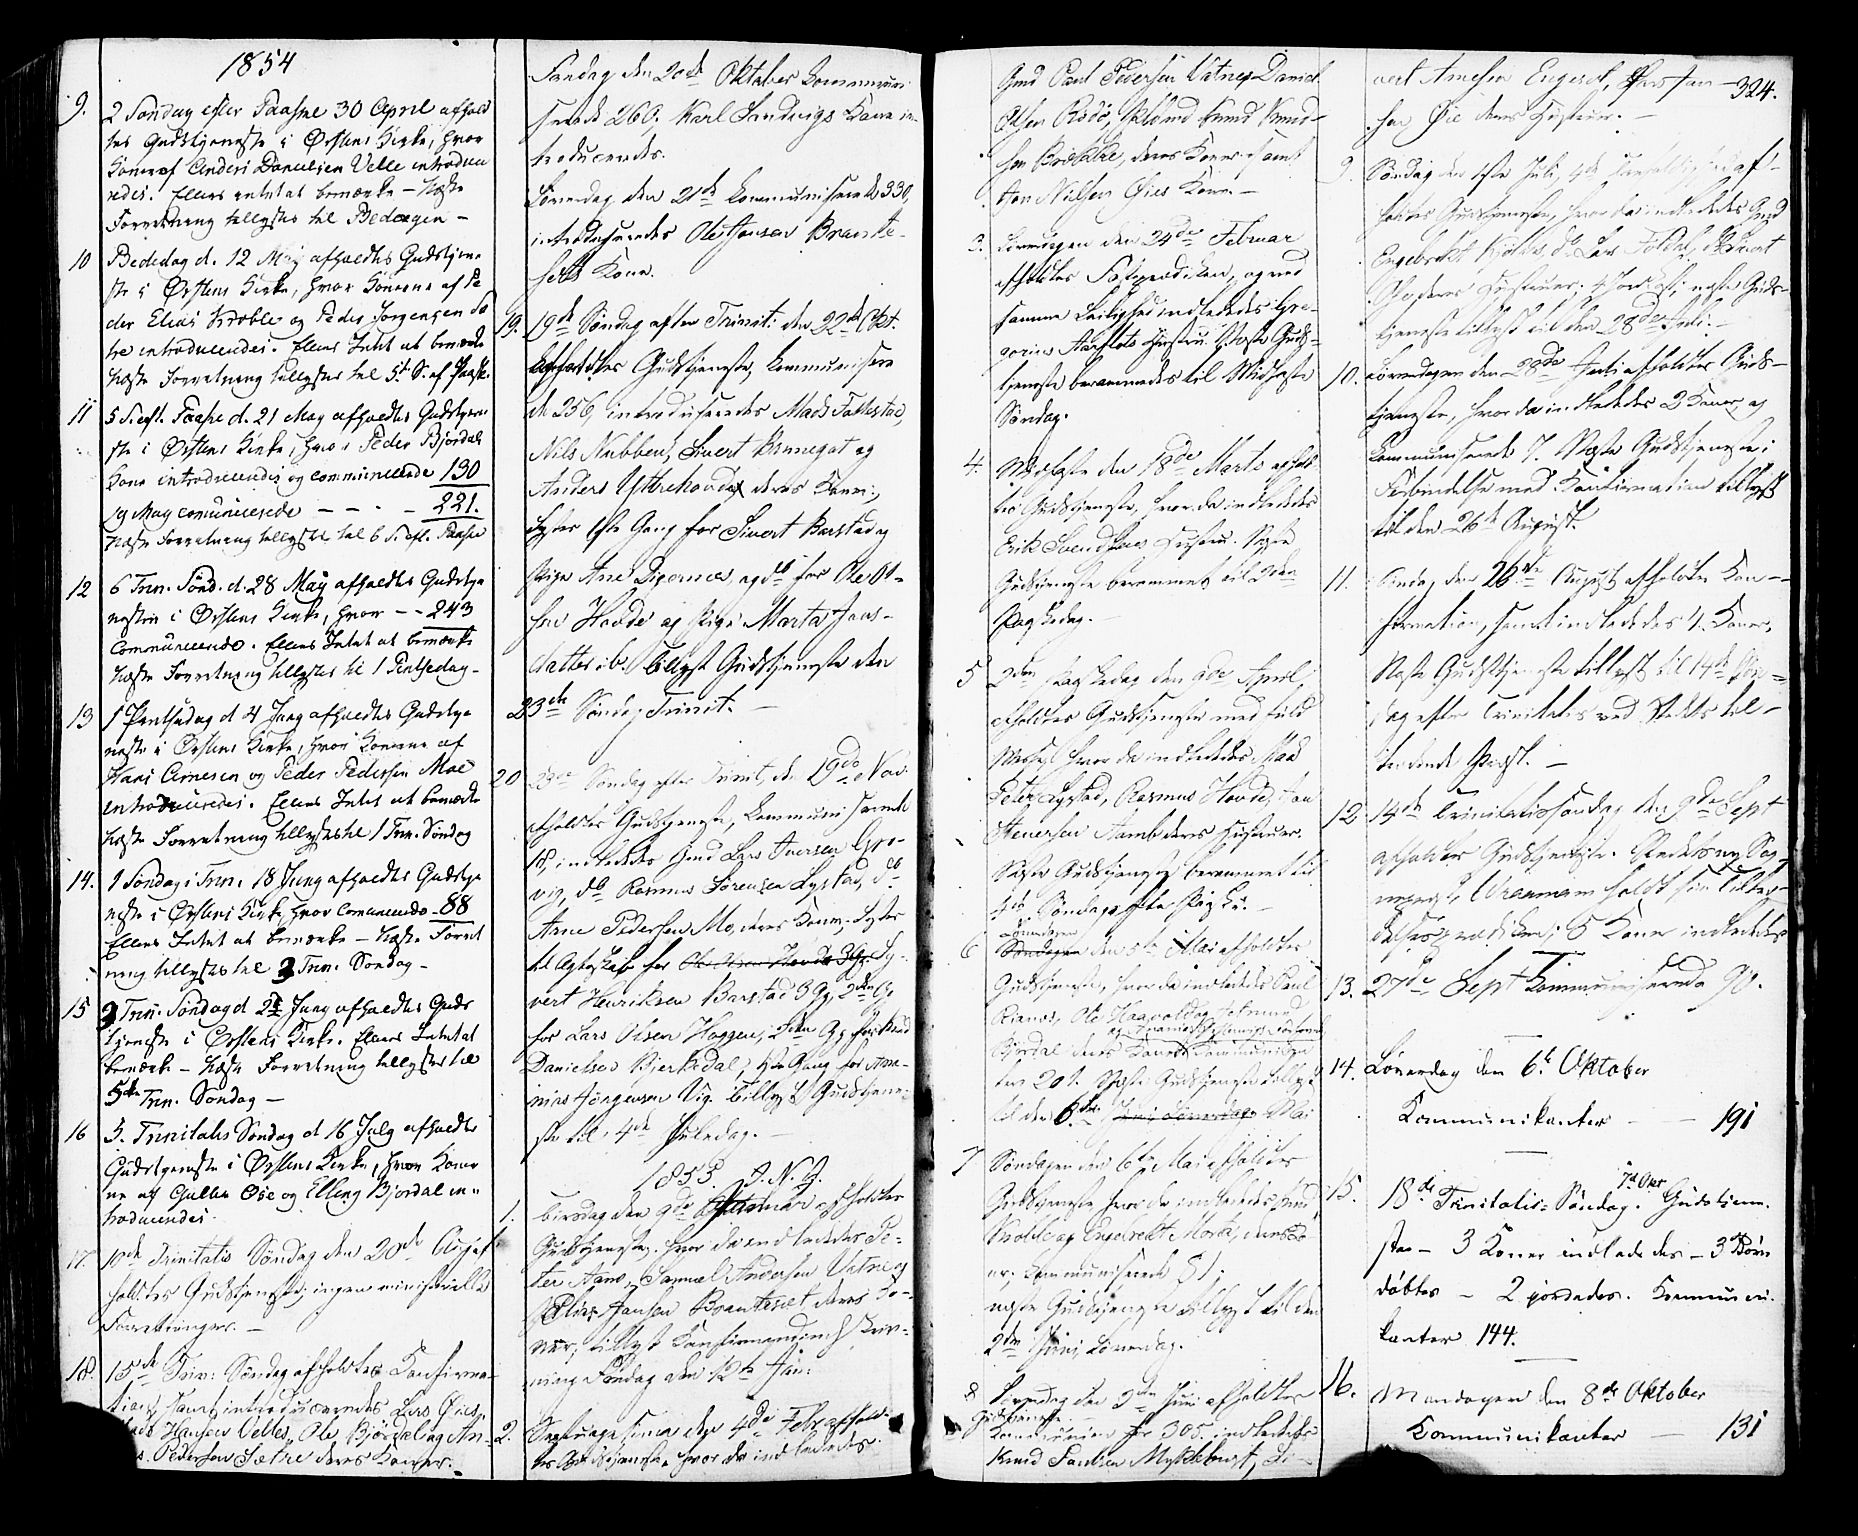 1854
9. 2 Søndag efter Paaske 30 April afhold
tes Gudstjeneste i Ørstens Kirke, hvor
Konen af Anders Danielsen Velle introduce
redes. Ellers intet at bemærke - Næste
Forretning tillystes til Bededagen -
10 Bededag d. 12 May afholdtes Gudstjene
ste i Ørstens Kirke, hvor Konerne af Pe
der Elias Krøble og Peder Jørgensen Sæ
tre introduceredes. Ellers Intet at bemærke
Næste Forretning tillystes til 5t S. ef Paaske
11 5 S. eft. Paaske d. 21 May afholdtes Gudstjene
ste i Ørstens Kirke, hvor Peder Bjørdals
Kone introduceredes og communicerede 130
19 May comunicerede - - - - 221.
Næste Forretning tillystes til 6 S. eft. Paaske
12 6 Trin. Sønd. d. 28 May afholdtes Gudstje
nesten i Ørstens Kirke, hvor - - 243
Communicerede. Ellers Intet at bemærke
Næste Forretning tillystes til 1 Pintsedag -
13 1 Pintsedag d 4 Juny afholdtes Gudstje
neste i Ørstens Kirke, hvor Konerne af
Hans Arnesen og Peder Pedersen Moe
introduceredes. Ellers Intet at bemærke
Næste Forretning tillystes til 1 Trin. Søndag
14. 1 Søndag i Trin. 18 Juny afholdtes Gudstje
neste i Ørstens Kirke, hvor Comunicerede - 88
Ellers Intet at bemærke - Næste Forret
ning tillystes til 3 Trin. Søndag -
15 3 Trin. Søndag d. 2 Juny afholdtes Guds
tjeneste i Ørstens Kirke. Ellers Intet at
bemærke - Næste Forretning tillystes til
5te Trin. Søndag -
16 5. Trinitatis Søndag d 16 July afholdte
Gudstjeneste i Ørstens Kirke, hvor Koner
ne af Øie og Elling Bjordal in-
troduceredes
17. 10de Trinitatis Søndag den 20de Aug af
holdtes Gudstjeneste; ingen ministerielle
Forretninger. -
18. 15de Trin: Søndag afholdtes Konfirma-
tion, samt introduceredes Lars Øies,
Hansen Velles, Ole Bjørdal og An-
Pedersen Sætre deres Koner.
Fredag den 20de Oktober kommuni
serede 260. Karl Sandvigs Kone in
troduceredes.
Løverdag den 21de kommuniserede 330,
introduseredes Ole Jonsen Braute-
sets Kone.
19. 19de Søndag efter Trinit: den 22de Okt.
afholdtes Gudstjeneste, kommunisere
de 256, introduseredes Mads Follestad,
Nils Nubben, Sivert Brunegot og
Anders Yttrehovde deres Koner;
lystes 1ste Gang for Sivert Barstad og
Pige Ane Digernes, og do for Ole Ol-
sen Hovde og Pige Marta Jons-
datter ib. Tillyst Gudstjeneste den
23de Søndag Trinit. -
20 23de Søndag efter Trinit, den 19de Nov.
afholdtes Gudstjeneste, kommuniserede
18, indlededes Gmd Lars Iversen Gro-
vig, do Rasmus Sørensen Lystad, do
Arne Pedersen Mo, deres Koner; lystes
til Ægteskab for Ole Olsen Hovde 3 Gg. Sy-
vert Henriksen Barstad 3 Gg, 2den Gg
for Lars Olsen Haggen, 2den Gg for Knud
Danielsen Bjerkedal, 1ste Gang for
nius Jørgensen Vig. Tillyst Gudstjene-
ste til 4de Juledag. -
1855. I. N. J.
1. den 9de afholdtes
Gudstjeneste, hvor da indlededes Pe-
ter Aans, Samuel Andersen Vatne og
Elias Jansen Brauteset deres Ko-
ner; tillyst Confirmandindskriv-
ning Søndag den 12te Jan:
2. Septuagesima den 4de Febr afhold-
tes Gudstjeneste, hvor da indlededes
Gmd Paul Pedersen Vatne, Daniel
Olsen
deres Koner, samt
Jon Nilsen Øies Kone. -
3. Løverdagen den 24de Februar
afholdtes Fasteprædiken, og ved
samme Leilighed indlededes Gre-
gorius Aarflots Hustru. Næste Guds-
tjeneste berammedes til Midfaste
Søndag.
4. Midfaste den 18de Marts afhold-
tes Gudstjeneste, hvor da indlededes
Erik Svendsens Hustru. Næste
Gudstjeneste berammet til 2den
Paaskedag. -
5 2den Paaskedag den 9de April,
afholdtes Gudstjeneste med fuld
Messe, hvor da indlededes
Peter Lystad, Rasmus Hovde, Jon
Steversen Aamb deres Hustruer.
Næste Gudstjeneste berammet til
4de Søndag efter Paaske. -
Løverdagen
6 Søndagen den 5te Mai afholdtes
Gudstjeneste, hvor da indlededes Paul
Rianes, Ole
Bjordal deres Koner. Kommunikan
ter 201. Næste Gudstjeneste tillyst
til den 6te Juni Løverdag Mai
7 Søndagen den 6te Mai afholdtes
Gudstjeneste hvor da indlededes Knud
Krøble og Engebrekt Mork, deres Ko-
ner; kommuniserede 81;
næste Gudstjeneste tillyst til den
2den Juni, Løverdag.
8 Løverdag den 2den Juni afholdtes
Gudstjeneste. -
Kommunion for 305. indlededes
Knud Paulsen Myklebust,
324.
Arnesen Engeset,
sen Øie deres Hustruer. -
9. Søndag den 1ste Juli, 4de Trinitatis, af-
holdtes Gudstjeneste, hvor da indlededes Gmd
Engebrekt Kjølås, do Lars
deres Hustruer; næste Guds-
tjeneste tillyst til den 28de Juli. -
10. Løverdagen den 28de Juli afholdtes Guds-
tjeneste, hvor da indlededes 2 Koner, og
kommuniserede 7. Næste Gudstjeneste i
Forbindelse med Konfirmation tillyst
til den 26de August.
11. Søndag den 26de August afholdtes Kon-
firmation, samt indlededes 4 Koner,
Næste Gudstjeneste tillyst til 14de Søn-
dag efter Trinitatis ved Stedets til-
tredende Præst. -
12 14de Trinitatissøndag den 9de Sept
afholdtes Gudstjeneste. Stedets nye Sog-
nepræst, Wraamann holdt sin Tiltræ-
delsesprædiken; 5 Koner indlededes
13. 27de Sept Kommuniserende 90.
14. Løverdag den 6te Oktober
Kommunikanter - - 191
15. 18de Trinitatis-Søndag. 7d Okt Gudstjene-
ste - 3 Koner indlededes - 3 Børn
døbtes - 2 jordedes. Kommuni-
kanter 144.
16. Mandagen den 8de Oktober
Kommunikanter - 131